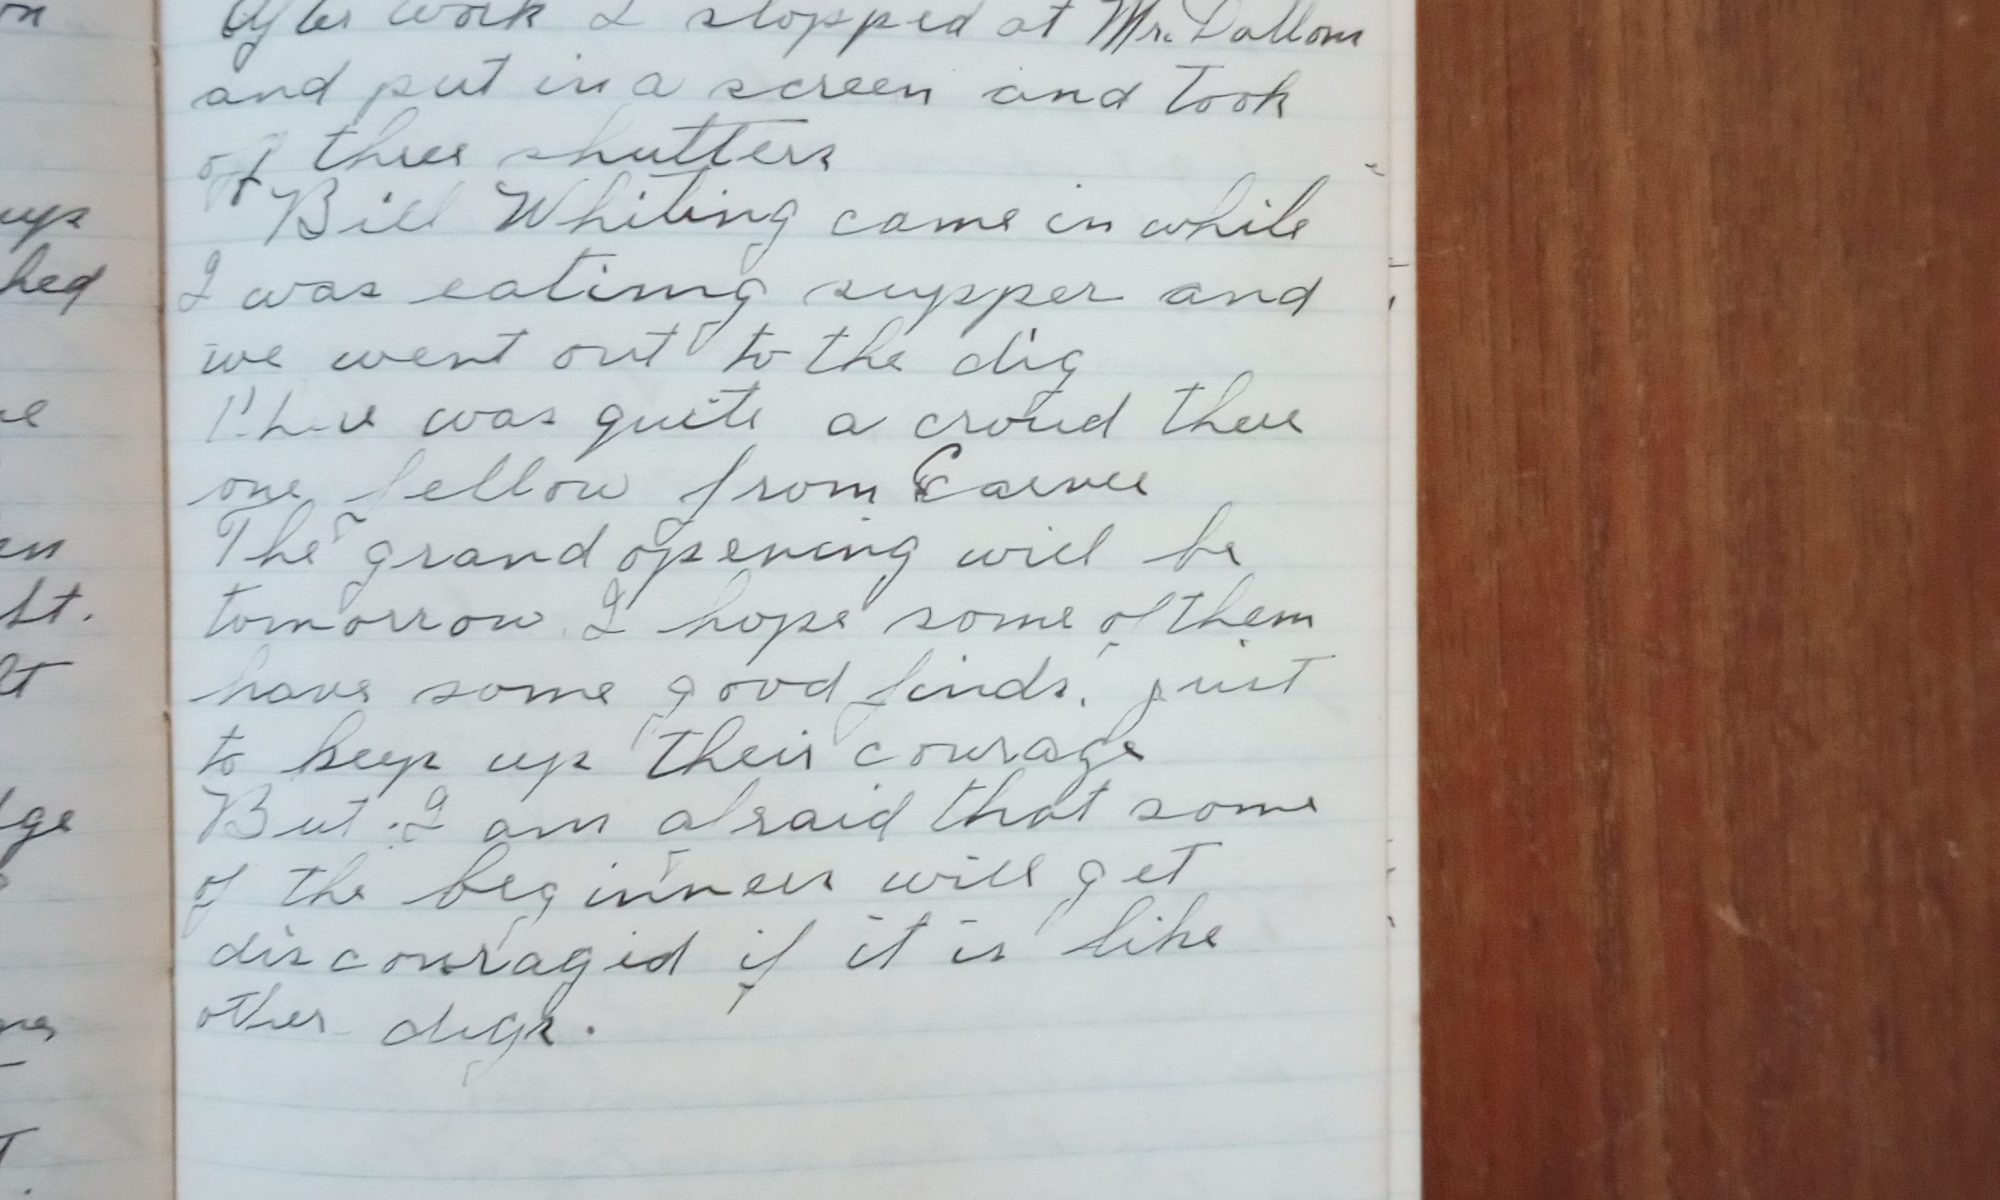 After work I stopped at Mr. Dallom
and put in a screen and took
off three shutters
Bill Whiting came in while
I was eating supper and
we went out to the dig
There was quite a croud there
one fellow from
The grand opening will be
tomorrow. I hope some of them
have some good finds. just
to keep up their courage
But I am afraid that some
of the beginners will get
discouraged if it is like
other digs.